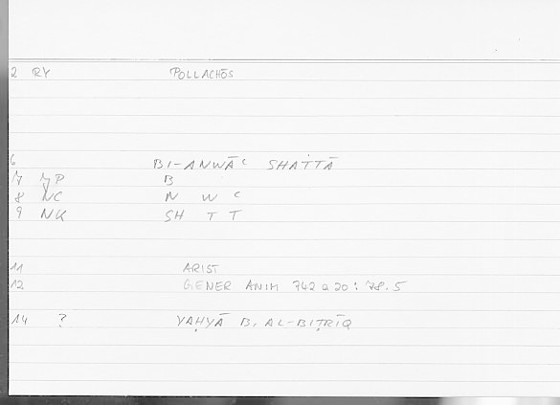 2 RY POLLACHŌS
6 BI-ANWĀʿ SHATTĀ
7 MP B
8 NC N W ʿ
9 NK SH T T
11 ARIST
12 GENER ANIM 742 a 20 : 78.5
14 ? YAḤYĀ B. AL-BIṬRĪQ